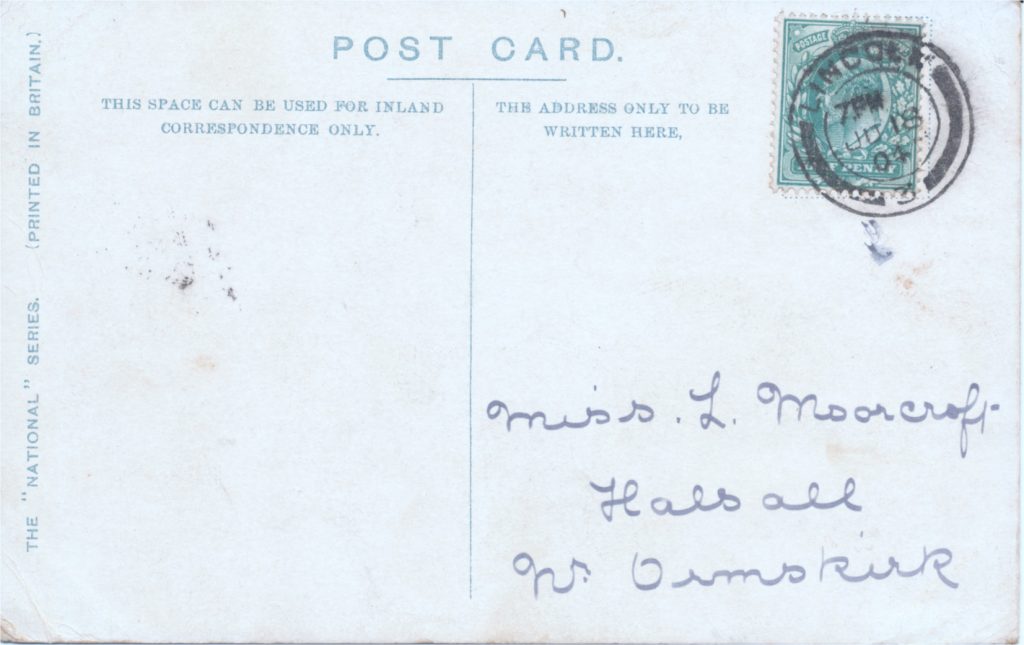 POST CARD.
THIS SPACE CAN BE USED FOR INLAND
CORRESPONDENCE ONLY.
THE ADDRESS ONLY TO BE
WRITTEN HERE,
THE "NATIONAL" SERIES. (PRINTED IN BRITAIN.)
POSTAGE
PENNY
LINCOLN
7 PM
18
04
Miss. L. Moorcroft
Halsall
Nr. Ormskirk